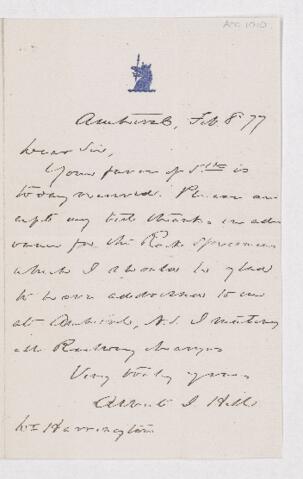 Amherst, Feb 8 77
Dear Sir,
Your favor of 5th is
to day received. Please ac
cept my best thanks in ad
vance for the Rock Specimens
which I should be glad
to have addressed to me
at Amherst, N.S. I meeting
all Railway charges
Very truly yours
Albert J Hill
Wm Harrington